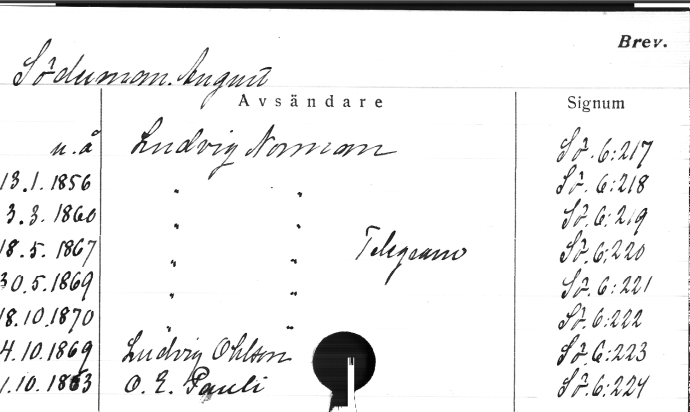 Brev.
Söderman. August
Avsändare Signum
u.å Ludvig Norman Sö. 6:217
13.1.1856 " " Sö. 6:218
3.3.1860 " " Sö. 6:219
18.5.1867 " " Telegram Sö. 6:220
30.5.1869 " " Sö. 6:221
18.10.1870 " " Sö. 6:222
4.10.1869 Ludvig Ohlson Sö. 6:223
1.10.1863 O. E. Pauli Sö. 6:224